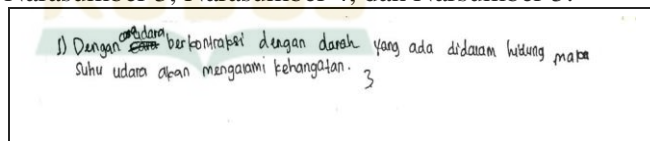 Narasumber 3, Narasumber 4, dan Narsumber 5.
1) Dengan cara udara berkontraksi dengan darah yang ada didalam hidung maka
Suhu udara akan mengalami kehangatan. 3